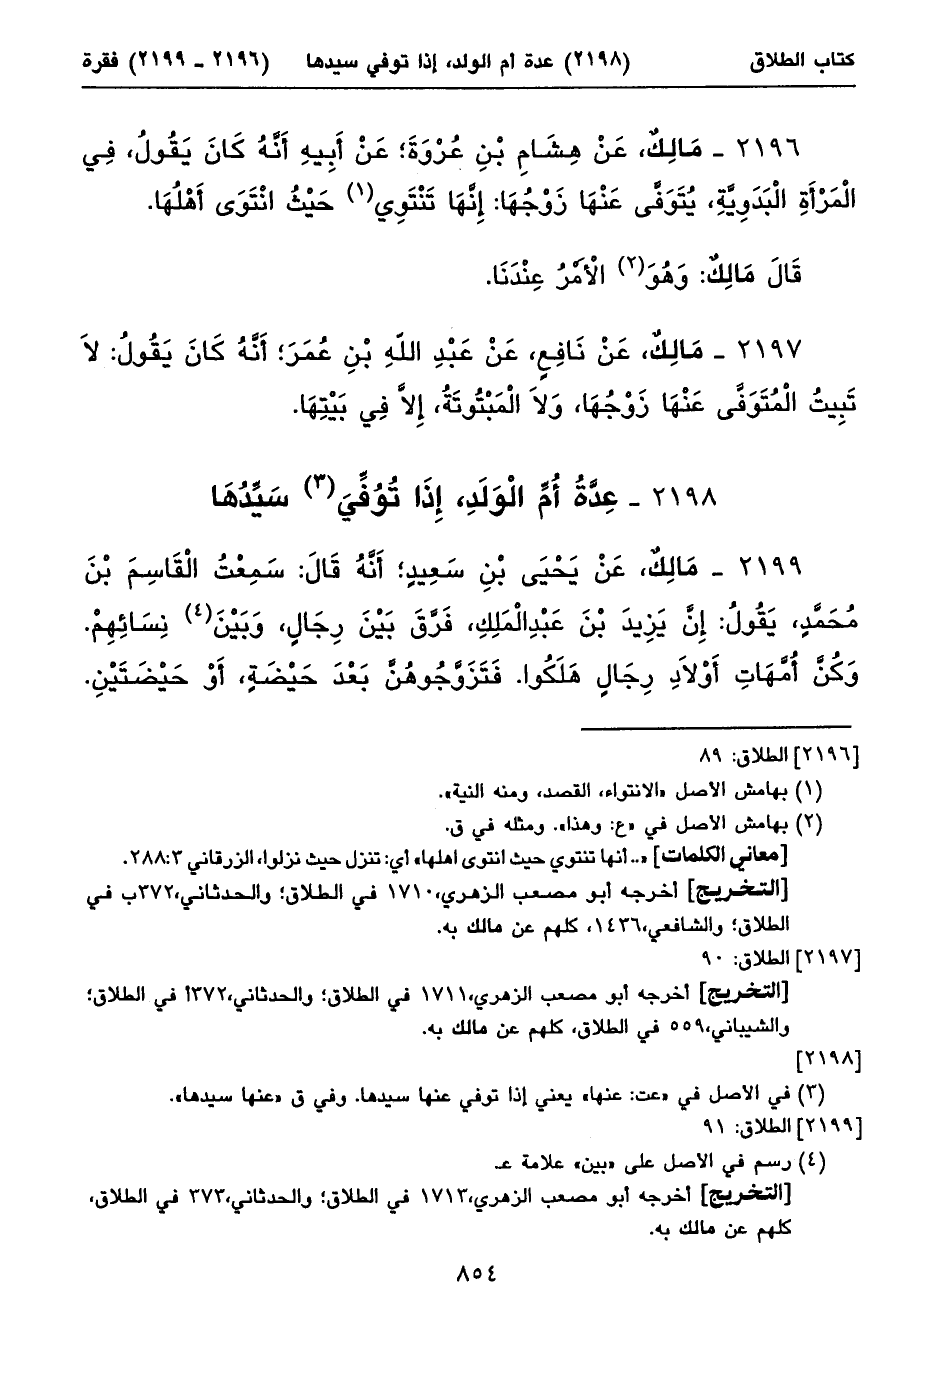 كتاب الطلاق (٢١٩٨) عدة أم الولد، إذا توفي سيدها (٢١٩٦ ـ ٢١٩٩) فقرة
٢١٩٦ ـ مَالِكٌ، عَنْ هِشَامِ بْنِ عُرْوَةَ؛ عَنْ أَبِيهِ أَنَّهُ كَانَ يَقُولُ، فِي
الْمَرْأَةِ الْبَدَوِيَّةِ، يُتَوَفَّى عَنْهَا زَوْجُهَا: إِنَّهَا تَنْتَوِي(١) حَيْثُ انْتَوَى أَهْلُهَا.
قَالَ مَالِكٌ: وَهُوَ(٢) الْأَمْرُ عِنْدَنَا.
٢١٩٧ ـ مَالِكٌ، عَنْ نَافِعٍ، عَنْ عَبْدِ اللّهِ بْنِ عُمَرَ؛ أَنَّهُ كَانَ يَقُولُ: لاَ
تَبِيتُ الْمُتَوَفَّى عَنْهَا زَوْجُهَا، وَلاَ الْمَبْتُوتَةُ، إِلاَّ فِي بَيْتِهَا.
٢١٩٨ ـ عِدَّةُ أُمِّ الْوَلَدِ، إِذَا تُوُفِّيَ(٣) سَيِّدُهَا
٢١٩٩ ـ مَالِكٌ، عَنْ يَحْيَى بْنِ سَعِيدٍ؛ أَنَّهُ قَالَ: سَمِعْتُ الْقَاسِمَ بْنَ
مُحَمَّدٍ، يَقُولُ: إِنَّ يَزِيدَ بْنَ عَبْدِالْمَلِكِ، فَرَّقَ بَيْنَ رِجَالٍ، وَبَيْنَ(٤) نِسَائِهِمْ.
وَكُنَّ أُمَّهَاتِ أَوْلاَدِ رِجَالٍ هَلَكُوا. فَتَزَوَّجُوهُنَّ بَعْدَ حَيْضَةٍ، أَوْ حَيْضَتَيْنِ.
[٢١٩٦] الطلاق: ٨٩
(١) بهامش الأصل «الانتواء، القصد، ومنه النية».
(٢) بهامش الأصل في «ع: وهذا». ومثله في ق.
[معاني الكلمات] «.. أنها تنتوي حيث انتوى اهلها» أي: تنزل حيث نزلوا، الزرقاني ٢٨٨:٣.
[التخريج] أخرجه أبو مصعب الزهري، ١٧١٠ في الطلاق؛ والحدثاني، ٣٧٢ب في
الطلاق؛ والشافعي، ١٤٣٦، كلهم عن مالك به.
[٢١٩٧] الطلاق: ٩٠
[التخريج] أخرجه أبو مصعب الزهري، ١٧١١ في الطلاق؛ والحدثاني، ٣٧٢أ في الطلاق؛
والشيباني، ٥٥٩ في الطلاق، كلهم عن مالك به.
[٢١٩٨]
(٣) في الأصل في «عت: عنها» يعني إذا توفي عنها سيدها. وفي ق «عنها سيدها».
[٢١٩٩] الطلاق: ٩١
(٤) رسم في الأصل على «بين» علامة عـ
[التخريج] أخرجه أبو مصعب الزهري، ١٧١٣ في الطلاق؛ والحدثاني، ٣٧٣ في الطلاق،
كلهم عن مالك به.
٨٥٤